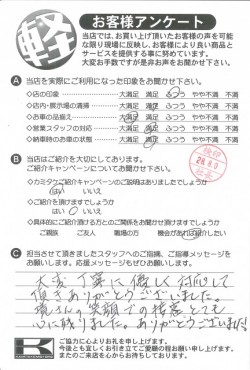 軽
お客様アンケート
当店では、お買い上げ頂いたお客様の声を可能
な限り現場に反映し、お客様により良い商品と
サービスを提供する事に努めています。
大変お手数ですが是非お声をお聞かせ下さい。
A 当店を実際にご利用になった印象をお聞かせ下さい。
◇店の印象 大満足 満足 ふつう やや不満 不満
◇店内・展示場の清掃 大満足 満足 ふつう やや不満 不満
◇お車の品揃え 大満足 満足 ふつう やや不満 不満
◇営業スタッフの対応 大満足 満足 ふつう やや不満 不満
◇納車時のお車の状態 大満足 満足 ふつう やや不満 不満
B 当店はご紹介を大切にしております。
ご紹介キャンペーンについてお聞かせ下さい。
◇カミタケご紹介キャンペーンのご説明はありましたでしょうか
はい いいえ
◇ご紹介を頂けますでしょうか
はい いいえ
◇具体的にご紹介頂ける方とのご関係をお聞かせ頂けますでしょうか
ご親族 ご友人 職場の方 機会があれば紹介したい
C 担当させて頂きましたスタッフへのご指摘、ご指導メッセージを
お願いします。応援メッセージもぜひお願いします。
大変丁寧に優しく対応して
頂きありがとうございました。
さんの笑顔での接客とても
心に残りました。ありがとうございました!
K
ご協力に心よりお礼を申し上げます。
今後とも宜しくお引き立てご愛顧の程お願い申し上げます。
またのご来店を心からお待ちしております。